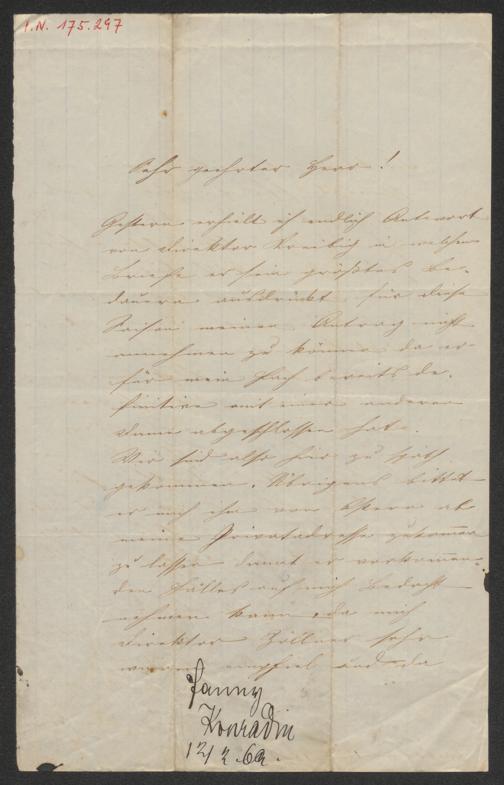 I.N. 175.297
Sehr geehrter Herr!
Gestern erhielt ich endlich Antwort
von Direktor Kreibig in welchem
Briefe er sein größtes Be-
dauern ausdrückt, für diese
Saison meinen Antrag nicht
annehmen zu können da er
für mein Fach bereits de-
finitiv mit einer anderen
Dame abgeschlossen hat.
Wir sind also hier zu spät
gekommen. Übrigens bittet
er mich ihm von Ostern ab
meine Privatadresse zukommen
zu lassen damit er vorkommen-
den Falles auf mich Bedacht
nehmen kann, da mich
Direktor Zöllner sehr
empfiel und da
Fanny
Konradin
12/2.69.